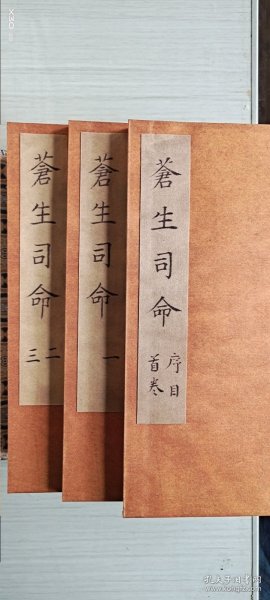 蒼生司命
序目
首卷
蒼生司命
一
蒼生司命
二
三
孔夫子旧书网